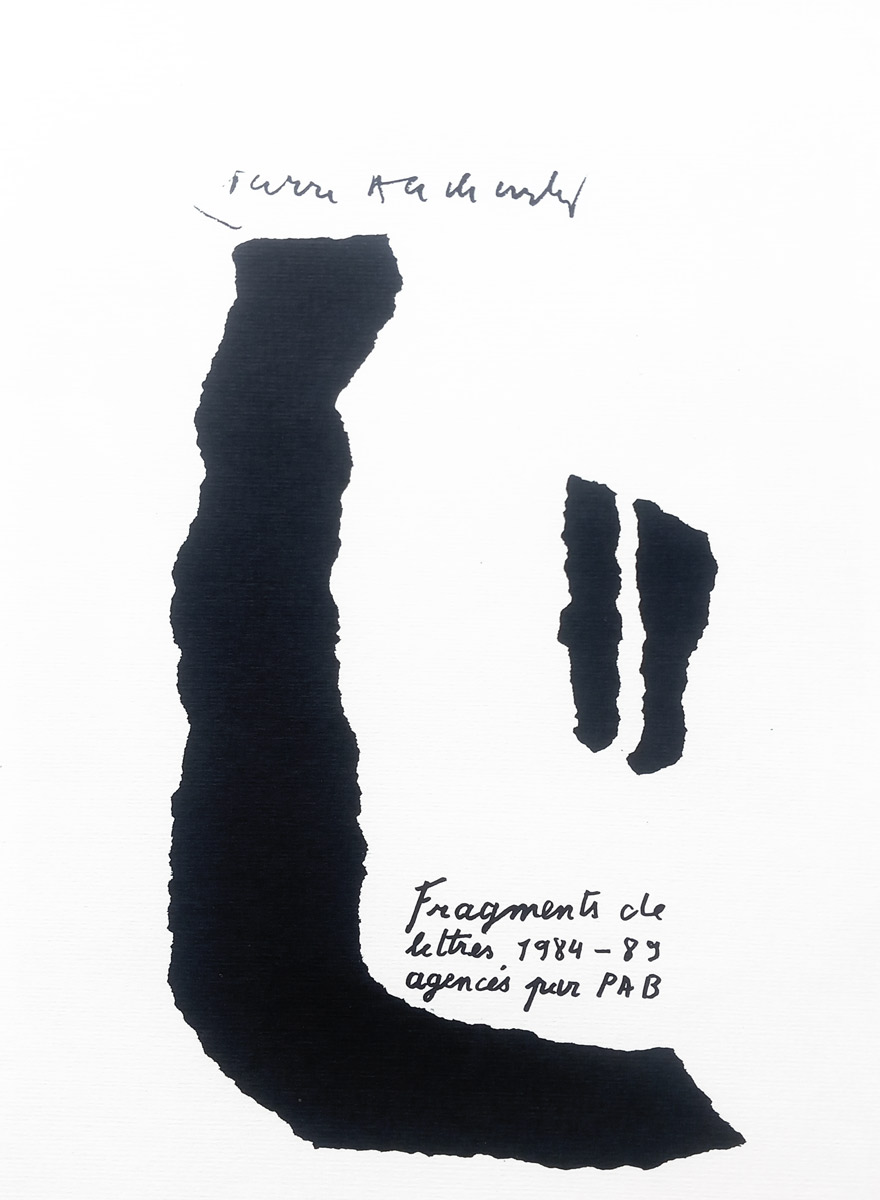 Pierre Alechinsky
Fragments de
lettres 1984-89
agencés par PAB